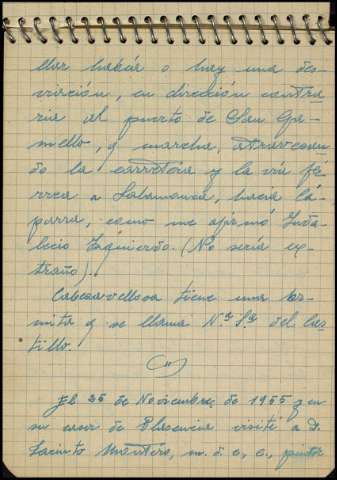 llar había o hay una des-
viación, en dirección contra-
ria al puerto de
mello, q marcha, atravesan-
do la carretera y la vía fé-
rrea a Salamanca, hacia Cá-
parra, como me afirmó Inda-
lecio Izquierdo. (No sería ex-
traño).
Cabezavellosa tiene una her-
mita q se llama N.ª S.ª del Cas-
tillo.
(")
El 26 de Noviembre de 1955 y en
su casa de Plasencia visité a D.
Jacinto m. d. e, e, pintor